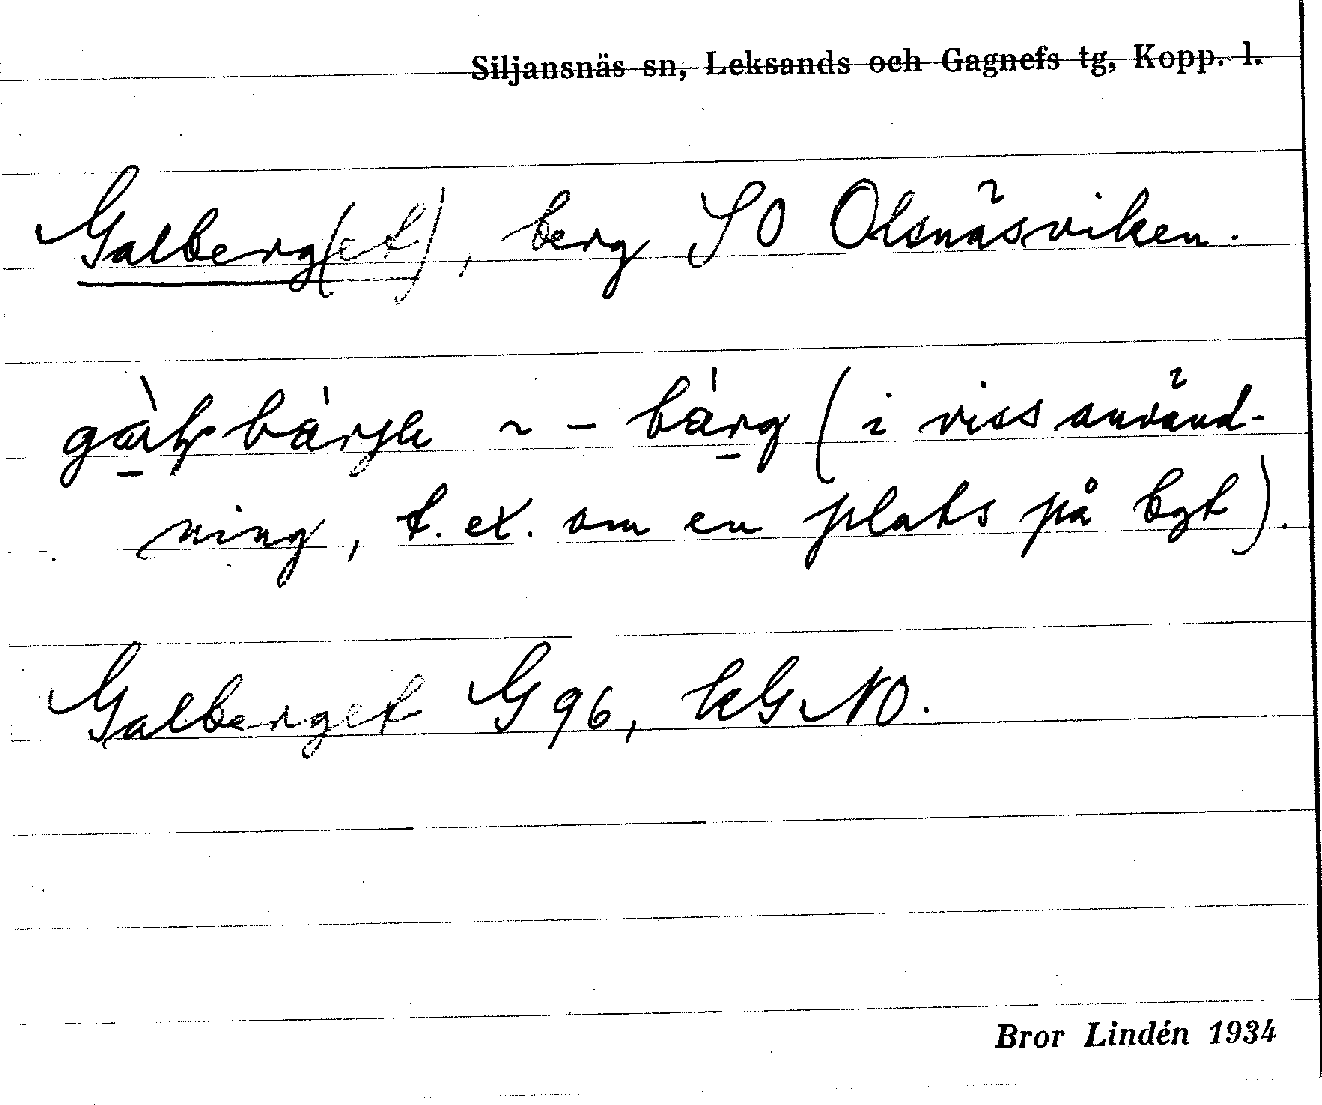 Siljansnäs sn, Leksands och Gagnefs tg, Kopp. l.
Galberg(et), berg SO Olsnäsviken.
~ - bárg (i viss använd-
ning, t. ex. om en plats på bgt).
Galberget G 96, kG NO.
Bror Lindén 1934